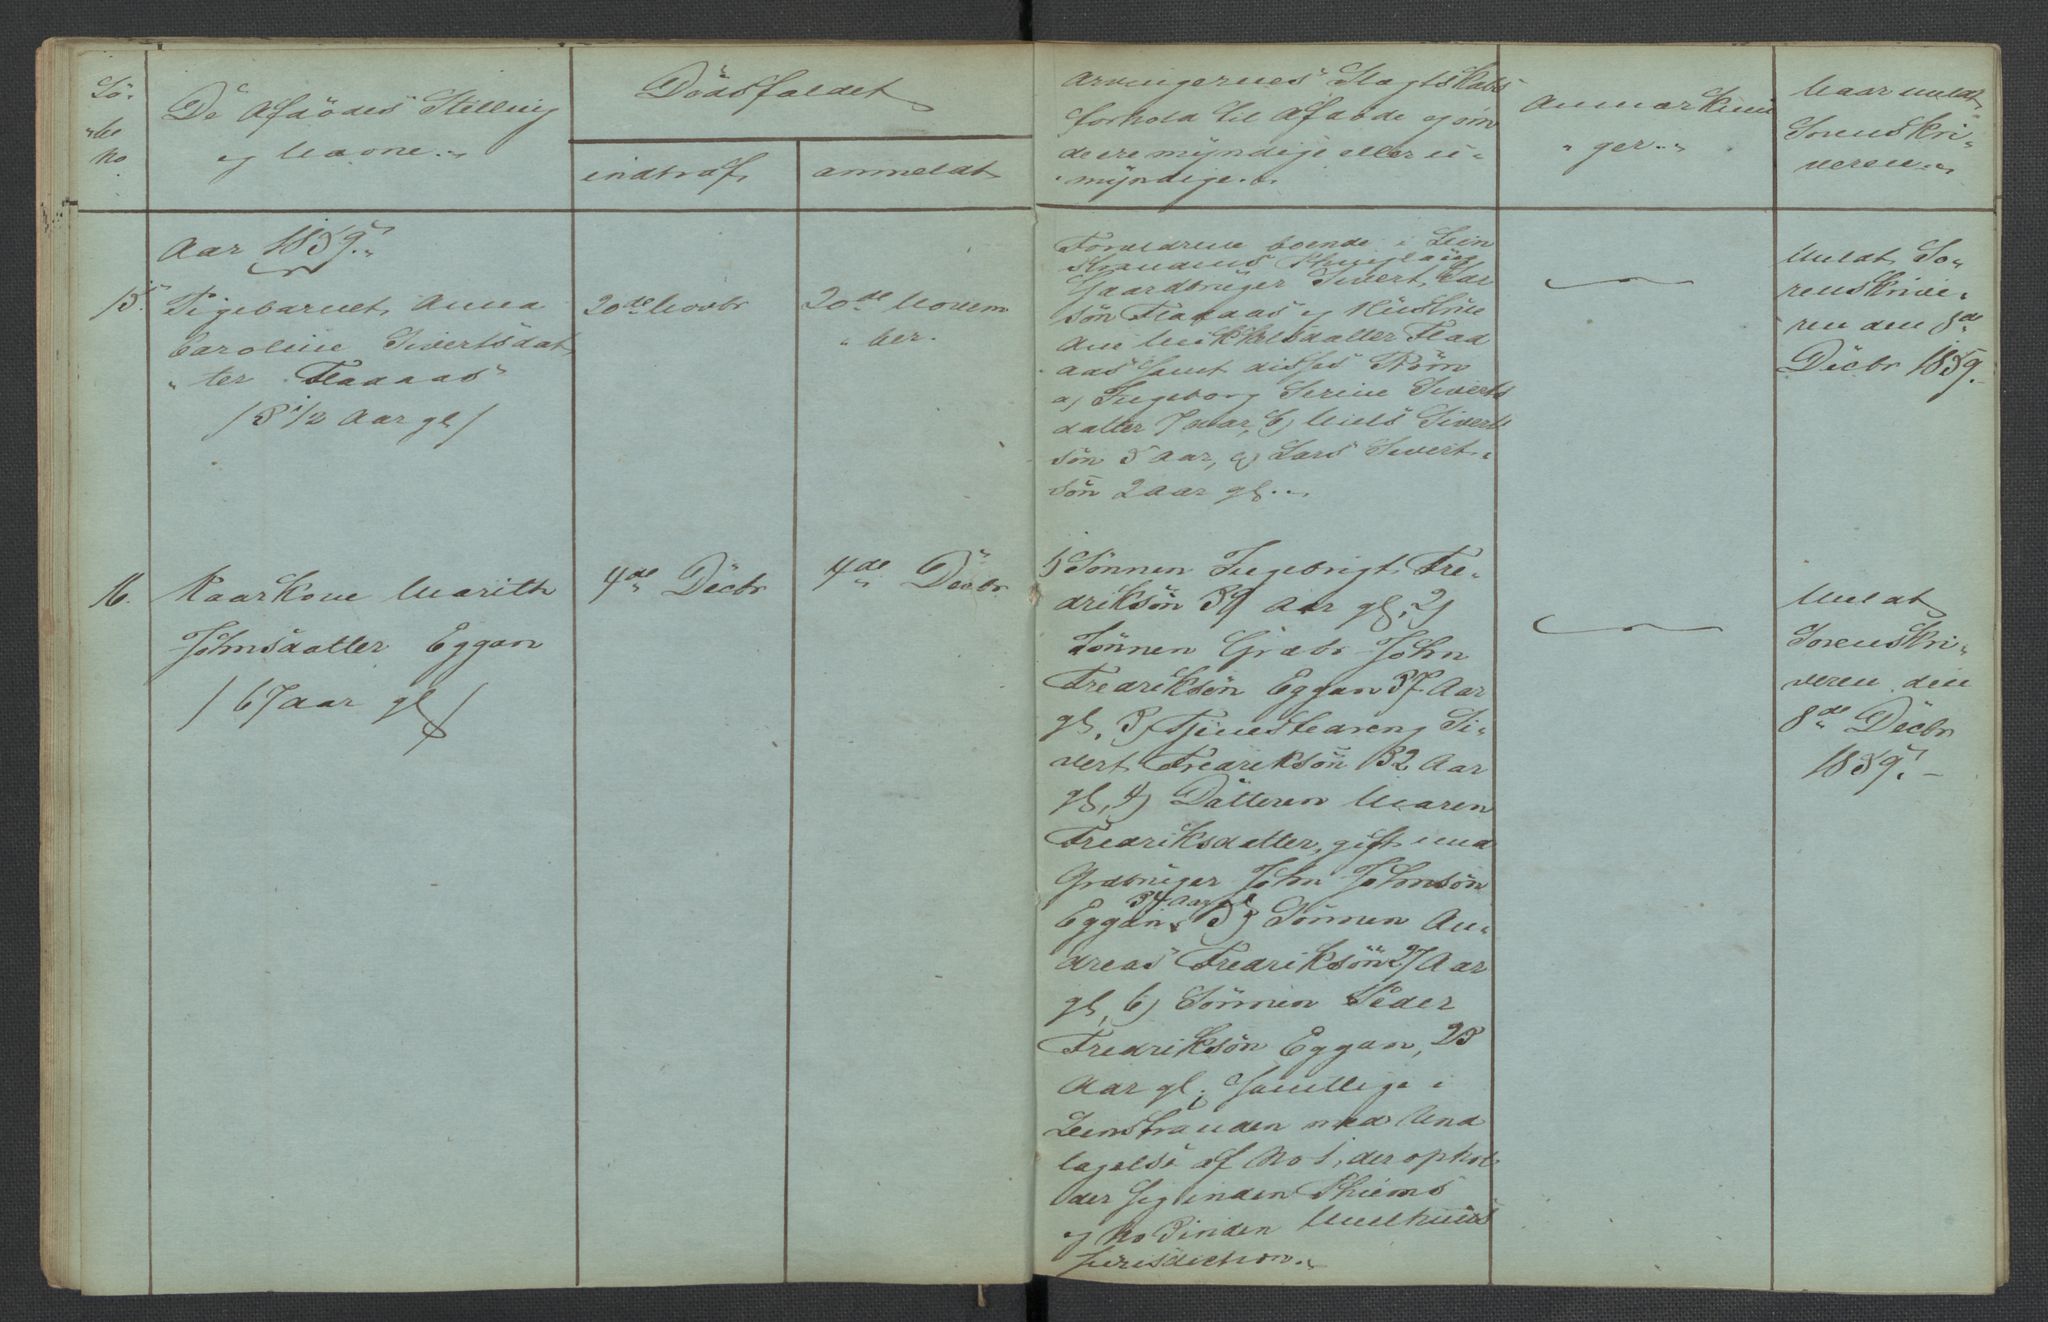 Lö-
be
No
De Afdödes Stilling
og Navne.
Dödsfaldet
indtraf.
anmeldt
Arvingernes Slagtskabs
forhold til Afdöde og om
de ere myndige eller u-
myndige.
Anmærknin
ger.
Naar meldt
Sorenskri-
veren.
Aar 1859.
15.
Pigebarnet Anna
Caroline Sivertsdat
ter Fladaas
/ 8 1/2 Aar gl /
20de Novbr
20de Novem
ber.
Foreldrene boende i Lein
strandens
Gaardbruger Sivert Lar
sön Fladaas og Hustrue
Ane Mikkelsdatter Flad
aas samt disses Börn
a) Ingeborg Serine Siverts
datter 7 Aar, b) Niels Siverts
sön 5 Aar, c) Lars Sivert-
sön 2 Aar gl.
Meldt So-
renskrive-
ren den 8de
Decbr 1859.
16.
Kaarkone Marith
Johnsdatter Eggan
/ 67 Aar gl /
4de Decbr
4de Decbr
1 Sönnen Ingebrigt Fre-
driksön 39 Aar gl, 2)
Sönnen Grdbr John
Fredriksön Eggan 37 Aar
gl, 3) Tjenestedreng Si-
vert Fredriksön 32 Aar
gl, 4) Datteren Maren
Fredriksdatter, gift med
Grdbruger John Johnsön
Eggan 34 Aar gl 5) Sönnen An-
dreas Fredriksön 27 Aar
gl, 6) Sönnen Peder
Fredriksön Eggan, 23
Aar gl; samtlige i
Leinstranden med Und
tagelse af No 1, der ophol
der sig inden Thiems
og No 3 inden Meelhuus
Jurisdiction.
Meldt
Sorenskri-
veren den
8de Decbr
1859.